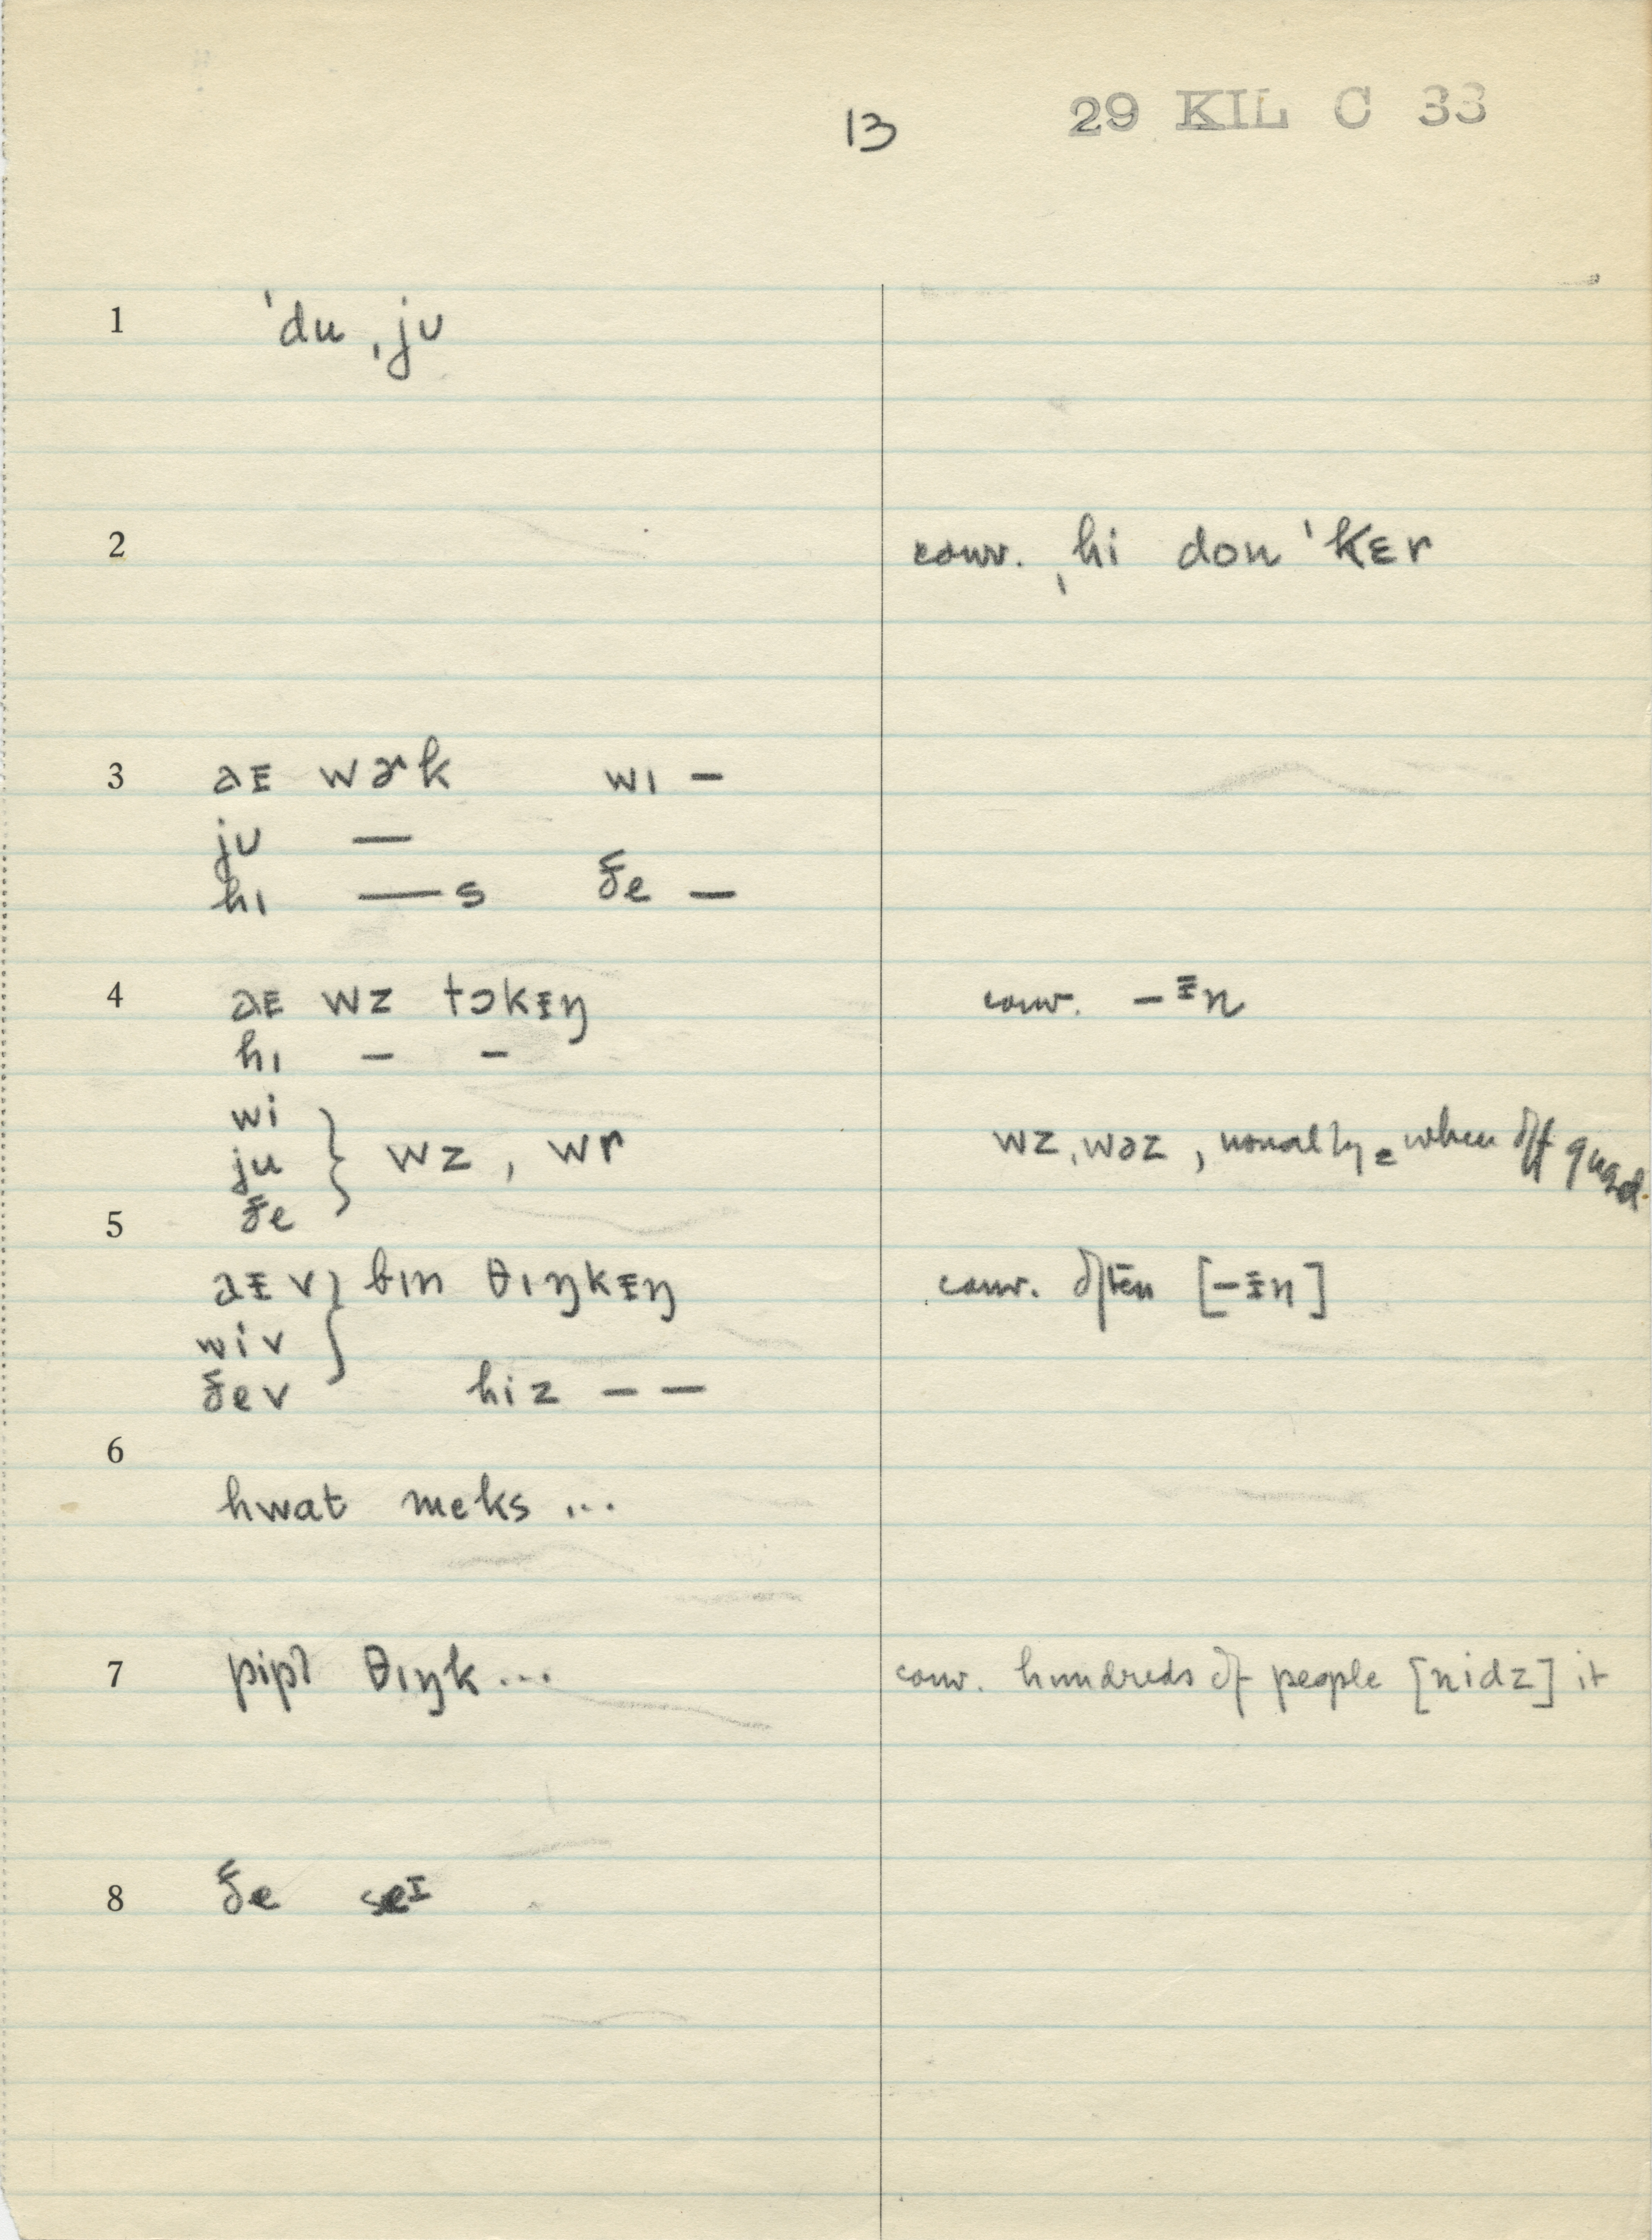 13 29 KIL C 33
1 ˈdu ˌju
2 conv. ˌhi don ˈkɛr
3 aᵻ wɚk wɪ —
ju —
hɪ —s ðe —
4 aᵻ wz tɔkᵻŋ conv. —ᵻn
hɪ — —
wi
ju } wz, wr wz, wəz, usually, when off guard.
ðe
5
aᵻ v } bɪn θɪŋkᵻŋ conv. often [—ᵻn]
wi v
ðe v hiz — —
6
hwat meks ...
7 pipl θɪŋk ... conv. hundreds of people [nidz] it
8 ðe seᴵ